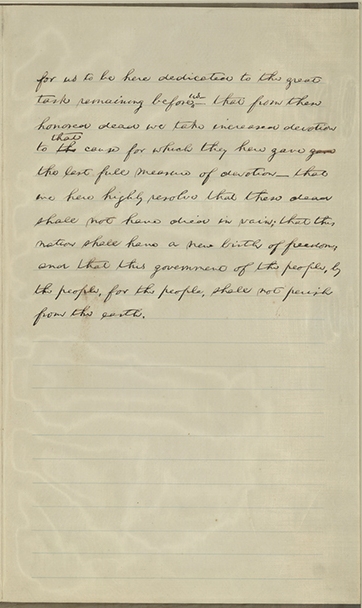 for us to be here dedicated to the great
us
task remaining before — that from these
honored dead we take increased devotion
that
to the cause for which they here gave
the last full measure of devotion — that
we here highly resolve that these dead
shall not have died in vain; that this
nation shall have a new birth of freedom;
and that this government of the people, by
the people, for the people, shall not perish
from the earth.